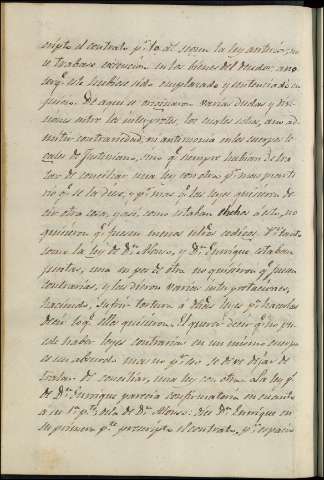 cripto el contrato pr. 10 as. segun la ley anterior, no
se trabase execucion en los bienes del deudor: a no
ser qe. este hubiese sido emplazado y sentenciado en
juicio. De aqui se originaron varias dudas y divi-
siones entre los interpretes; los cuales solian, aun ad-
mitir contrariedad, ni antinomia en los cuerpos le-
gales de Justiniano, sino qe. siempre habian de tra-
tar de conciliar una ley con otra, pr. mas opuesta
no qe. se la diese, y pr. mas qe. las leyes quisieran de-
cir otra cosa, y asi como estaban dichos a esto, no
quisieron qe. fuesen menos estos codices. Pr. tanto
como la ley de Dn. Alonso, y Dn. Enrique estaban
juntas, una en pos de otra no quisieron qe. fuesen
contrarias, y les dieron varias interpretaciones,
haciendo sufrir tortura a dhas. leyes pa. hacerlas
decir lo qe. ellos quisieron. El querer decir qe. no pu-
ede haber leyes contrarias en un mismo cuerpo
es un absurdo mas no pr. eso se debe dejar de
tratar de conciliar una ley con otra. La ley pa.
de Dn. Enrique parecia confirmatoria en cuanto
a su 1a. pte. de la de Dn. Alonso: dice Dn. Enrique en
su primera pte. prescripto el contrato, pr. espacio